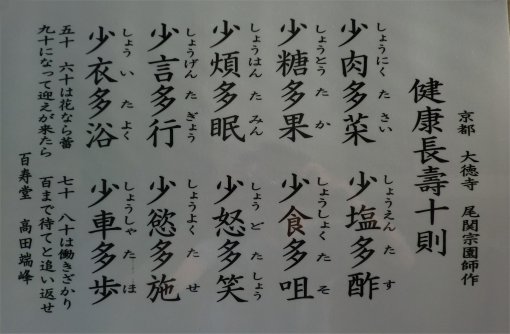 京都 大徳寺 尾関宗園師作
健康長壽十則
しょうにく た さい しょうえん た す
少肉多菜 少塩多酢
しょうとう た か しょうしょく た そ
少糖多果 少食多咀
しょうはん た みん しょう ど た しょう
少煩多眠 少怒多笑
しょうげん た ぎょう しょうよく た せ
少言多行 少慾多施
しょう い た よく しょうしゃ た ほ
少衣多浴 少車多歩
五十 六十は花なら蕾 七十 八十は働きざかり
九十になって迎えが来たら 百まで待てと追い返せ
百寿堂 高田端峰